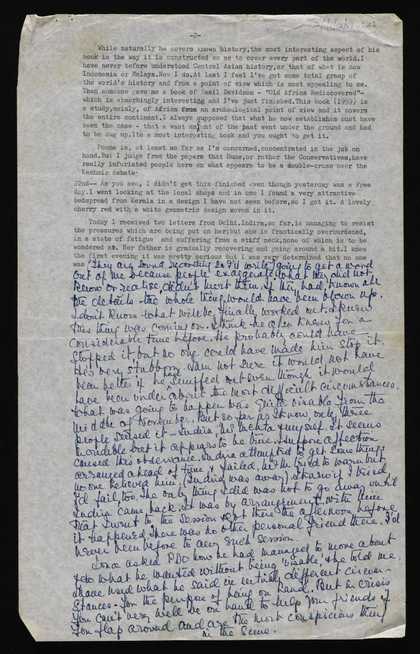 -2-
While naturally he covers known history,the most interesting aspect of his
book is the way it is constructed so as to cover every part of the world.I
have never before understood Central Asian history,or that of what is now
Indonesia or Malaya.Now I do.At last I feel I've got some total grasp of
the world's history and from a point of view which is most appealing to me.
Then someone gave me a book of Basil Davidson - "Old Africa Rediscovered"-
which is absorbingly interesting and I've just finished.This book (1959) is
a study,mainly, of Africa from an archeological point of view and it covers
the entire continent.I always supposed that what he now establishes must have
been the case - that a vast amount of the past went under the ground and had
to be dug up.Its a most interesting book and you ought to get it.
People is, at least so far as I'm concerned,concentrated in the job on
hand.But I judge from the papers that Hume,or rather the Conservatives,have
really infuriated people here on what appears to be a double-cross over the
22nd-- As you see, I didn't get this finished even though yesterday was a free
day.I went looking at the local shops and in one I found a very attractive
bedspread from Kerala in a design I have not seen before,so I got it. A lovely
cherry red with a white geometric design woven in it.
Today I received two letters from Delhi.Indira,so far,is managing to resist
the pressures which are being put on her;but she is frantically overburdened,
in a state of fatigue and suffering from a stiff neck,none of which is to be
wondered at. Her father is gradually recovering and going around a bit.I knew
the first evening it was pretty serious but I was very determined that no one
was
out of me because people exaggerate. What they did not
know or realise, didn't hurt them. If they had known all
the details the whole thing would have been blown up.
I don't know what will be finally worked out. I knew
this thing was coming on. I think he also knew for a
considerable time before. He probably could have
stopped it but no one could have made him stop it.
He's very stubborn. I am not sure it would not have
been better if he
have been under about the most difficult circumstances.
What was going to happen was quite visible from the
middle of November. But so far as I know only three
people sensed it - Indira, Mr Mehta & myself. It seems
incredible but it appears to be true. I suppose affection
caused this observance. Indira attempted to get something
arranged ahead of time & failed. Mehta tried to warn but
no one believed him. (Indira was away) & I knew if I tried
I'd fail, too. The only thing I did was not to go away until
Indira came back. It was by arrangement with him
that I went to the Session & got there the afternoon before
it happened. There was no other personal friend there. I'd
never been before to any such session.
I once asked PDO how he had managed to move about
& do what he wanted without being 'visible' & he told me.
I have used what he said in entirely different circum-
stances - for the purpose of being on hand. But in crisis
you can't very well be on hand to help your friends if
you flap around and are the most conspicuous thing
in the scene.